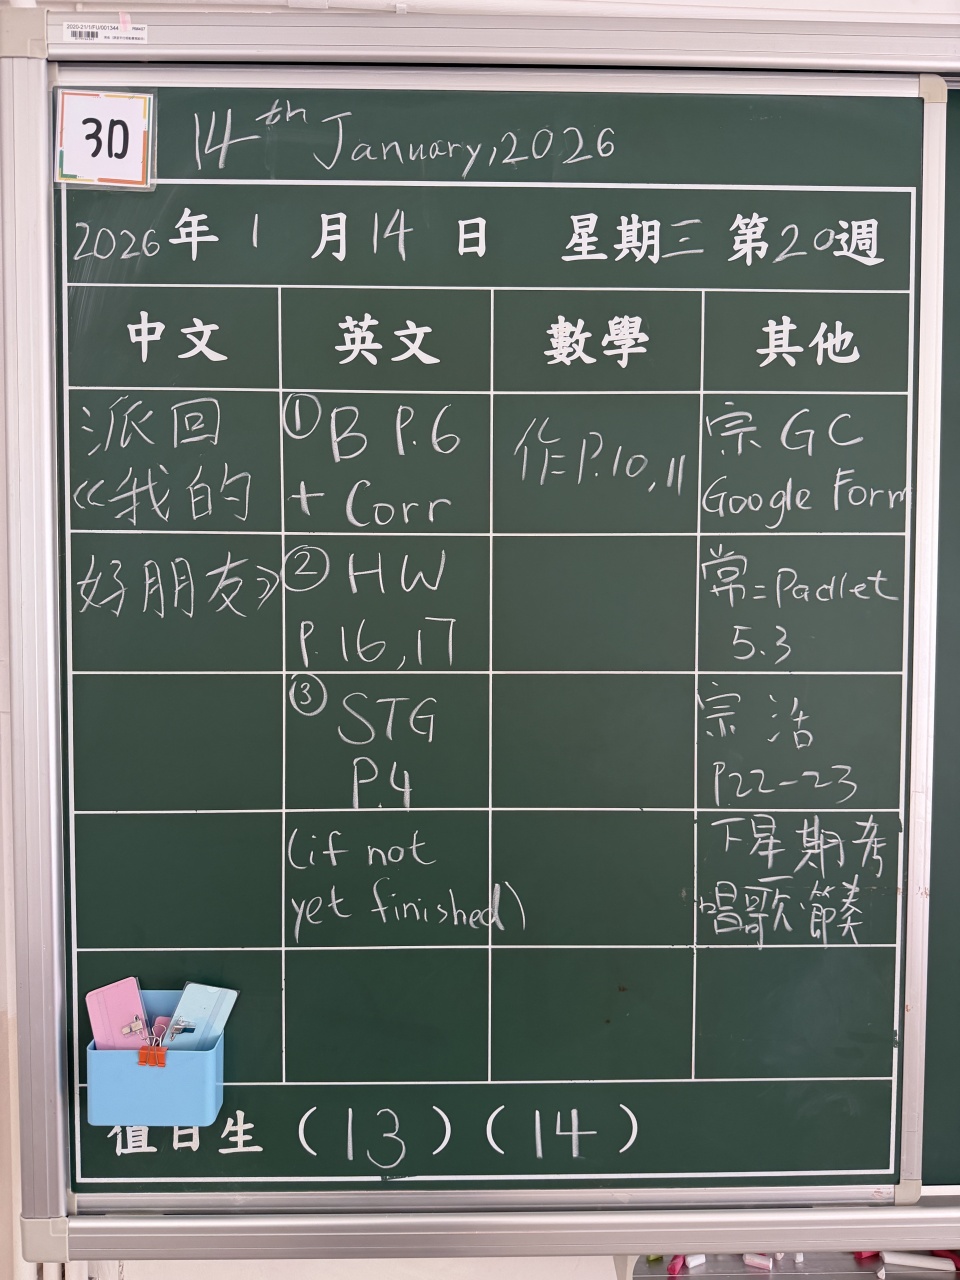 2020-21/1/FU/001344
3D
14th January, 2026
2026年1月14日 星期三 第20週
中文 英文 數學 其他
派回
《我的
好朋友》
① B P.6
+ Corr
② HW
P.16,17
③ STG
P.4
(if not
yet finished)
作P.10,11
宗 GC
Google Form
常=Padlet
5.3
宗 活
P.22-23
下星期考
唱歌、節奏
值日生 (13) (14)